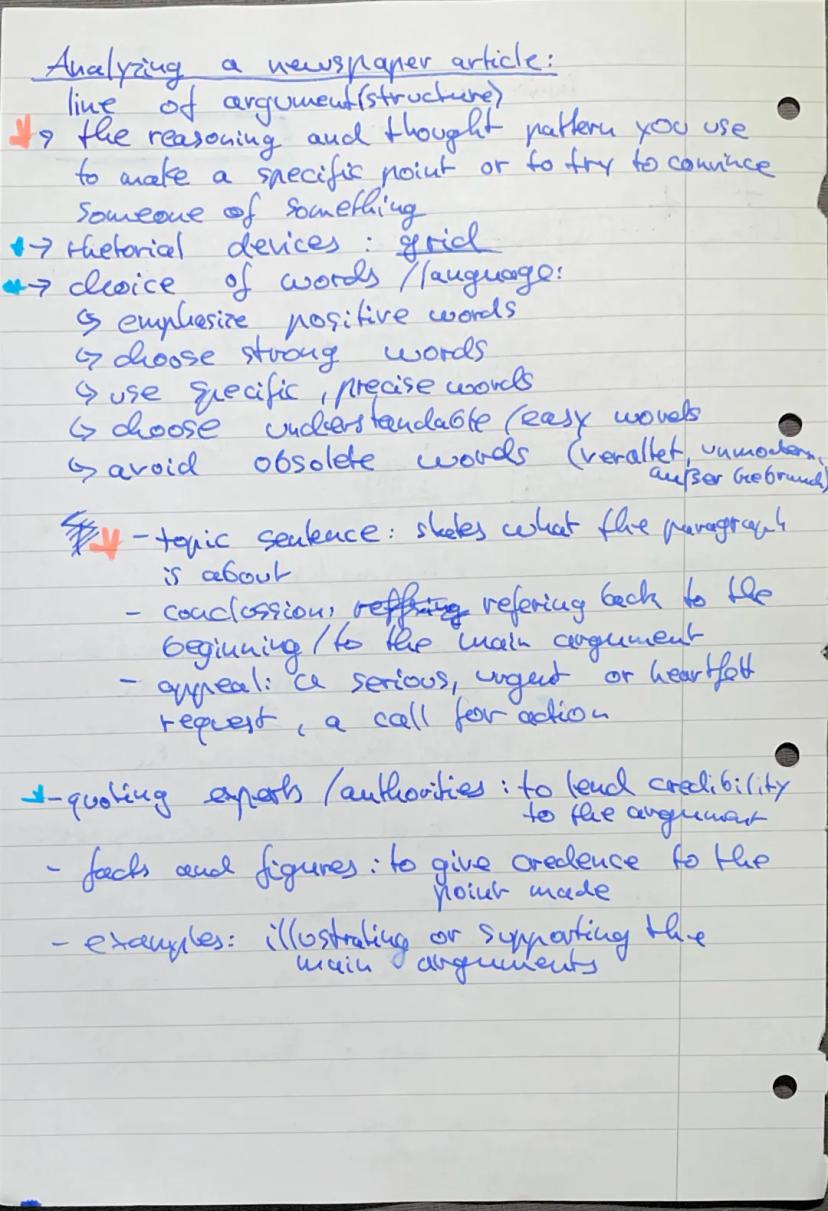 Analyzing a newspaper article:
line of argument (structure)
→ the reasoning and thought pattern you use
to make a specific point or to try to convince
someone of something
→ rhetorial devices : grid
→ choice of words / language:
↳ emphasize positive words
↳ choose strong words
↳ use specific, precise words
↳ choose understandable / easy words
↳ avoid obsolete words (veraltet, unmodern,
außer Gebrauch)
- topic sentence: states what the paragraph
is about
- conclossion, refering back to the
beginning / to the main argument
- appeal: a serious, urgent or heartfelt
request, a call for action
- quoting experts / authorities : to lend credibility
to the argument
- facts and figures : to give credence to the
point made
- examples: illustrating or supporting the
main arguments